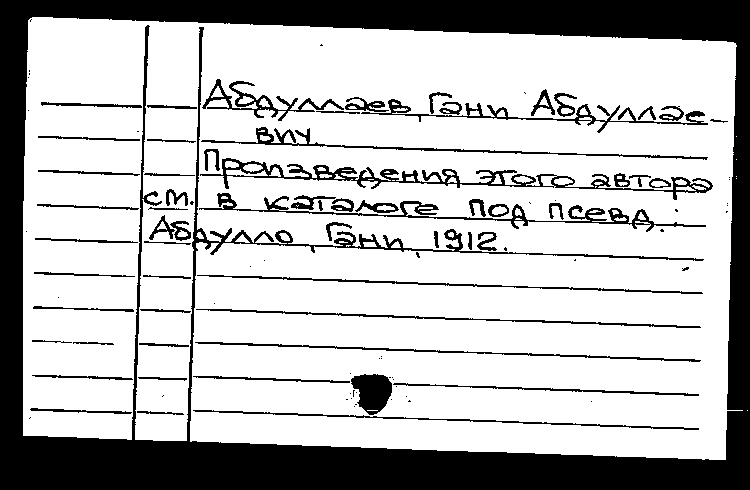 Абдуллаев, Гани Абдуллае-
вич.
Произведения этого автора
см. в каталоге под псевд.:
Абдулло, Гани, 1912.